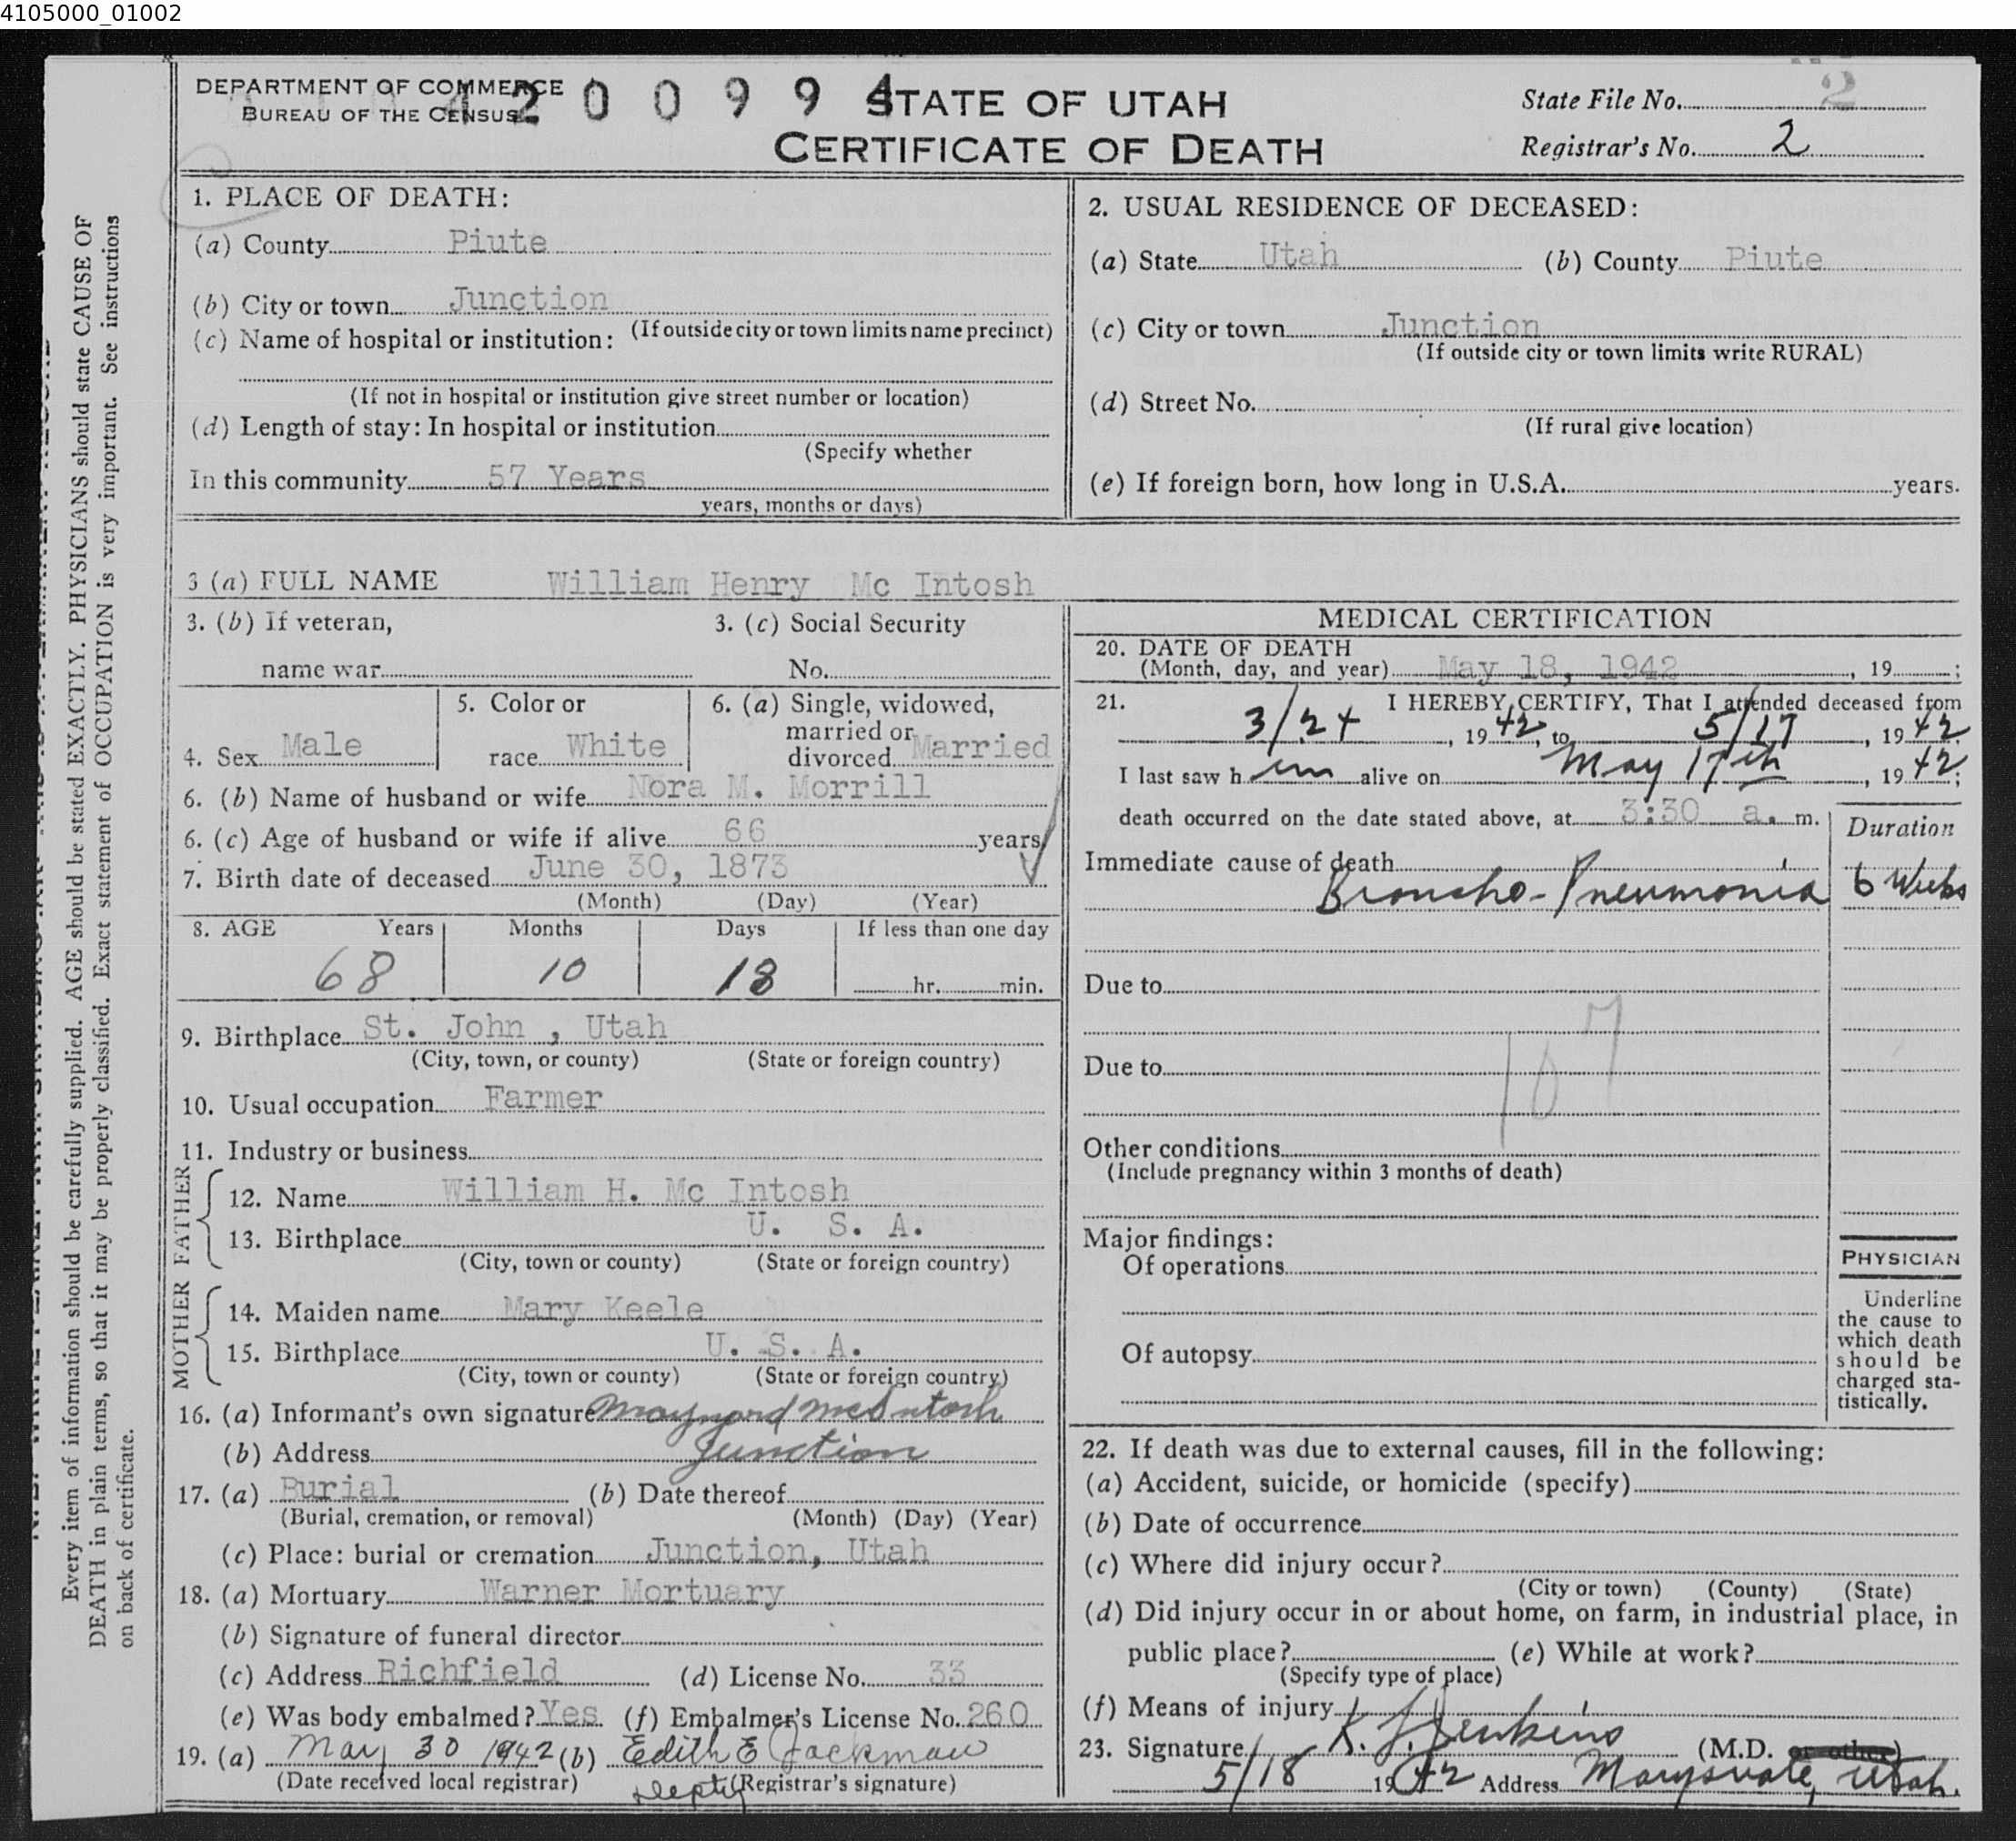 4105000_01002
DEPARTMENT OF COMMERCE
BUREAU OF THE CENSUS
4 2 0 0 9 9 4
STATE OF UTAH
CERTIFICATE OF DEATH
State File No. 2
Registrar's No. 2
Every item of information should be carefully supplied. AGE should be stated EXACTLY. PHYSICIANS should state CAUSE OF
DEATH in plain terms, so that it may be properly classified. Exact statement of OCCUPATION is very important. See instructions
on back of certificate.
1. PLACE OF DEATH:
(a) County Piute
(b) City or town Junction
(If outside city or town limits name precinct)
(c) Name of hospital or institution:
(If not in hospital or institution give street number or location)
(d) Length of stay: In hospital or institution
(Specify whether
In this community 57 Years
years, months or days)
2. USUAL RESIDENCE OF DECEASED:
(a) State Utah (b) County Piute
(c) City or town Junction
(If outside city or town limits write RURAL)
(d) Street No.
(If rural give location)
(e) If foreign born, how long in U.S.A. years.
3 (a) FULL NAME William Henry Mc Intosh
3. (b) If veteran,
name war
3. (c) Social Security
No.
4. Sex Male
5. Color or
race White
6. (a) Single, widowed,
married or
divorced Married
6. (b) Name of husband or wife Nora M. Morrill
6. (c) Age of husband or wife if alive 66 years
7. Birth date of deceased June 30, 1873
(Month) (Day) (Year)
8. AGE Years Months Days If less than one day
68 10 18 hr. min.
9. Birthplace St. John , Utah
(City, town, or county) (State or foreign country)
10. Usual occupation Farmer
11. Industry or business
FATHER
12. Name William H. Mc Intosh
13. Birthplace U. S. A.
(City, town or county) (State or foreign country)
MOTHER
14. Maiden name Mary Keele
15. Birthplace U. S. A.
(City, town or county) (State or foreign country)
16. (a) Informant's own signature Maynard McIntosh
(b) Address Junction
17. (a) Burial (b) Date thereof
(Burial, cremation, or removal) (Month) (Day) (Year)
(c) Place: burial or cremation Junction, Utah
18. (a) Mortuary Warner Mortuary
(b) Signature of funeral director
(c) Address Richfield (d) License No. 33
(e) Was body embalmed? Yes (f) Embalmer's License No. 260
19. (a) May 30 1942 (b) Edith E Jackman
(Date received local registrar) Depty (Registrar's signature)
MEDICAL CERTIFICATION
20. DATE OF DEATH
(Month, day, and year) May 18, 1942 , 19 ;
21. I HEREBY CERTIFY, That I attended deceased from
3/24, 1942, to 5/17, 1942
I last saw h im alive on May 17th, 1942;
death occurred on the date stated above, at 3:30 a. m.
Duration
Immediate cause of death
Broncho-Pneumonia 6 Weeks
Due to
107
Due to
Other conditions
(Include pregnancy within 3 months of death)
Major findings:
Of operations
Of autopsy
PHYSICIAN
Underline
the cause to
which death
should be
charged sta-
tistically.
22. If death was due to external causes, fill in the following:
(a) Accident, suicide, or homicide (specify)
(b) Date of occurrence
(c) Where did injury occur?
(City or town) (County) (State)
(d) Did injury occur in or about home, on farm, in industrial place, in
public place? (e) While at work?
(Specify type of place)
(f) Means of injury
23. Signature K. J. Jenkins (M.D. or other)
5/18 1942 Address Marysvale, Utah.